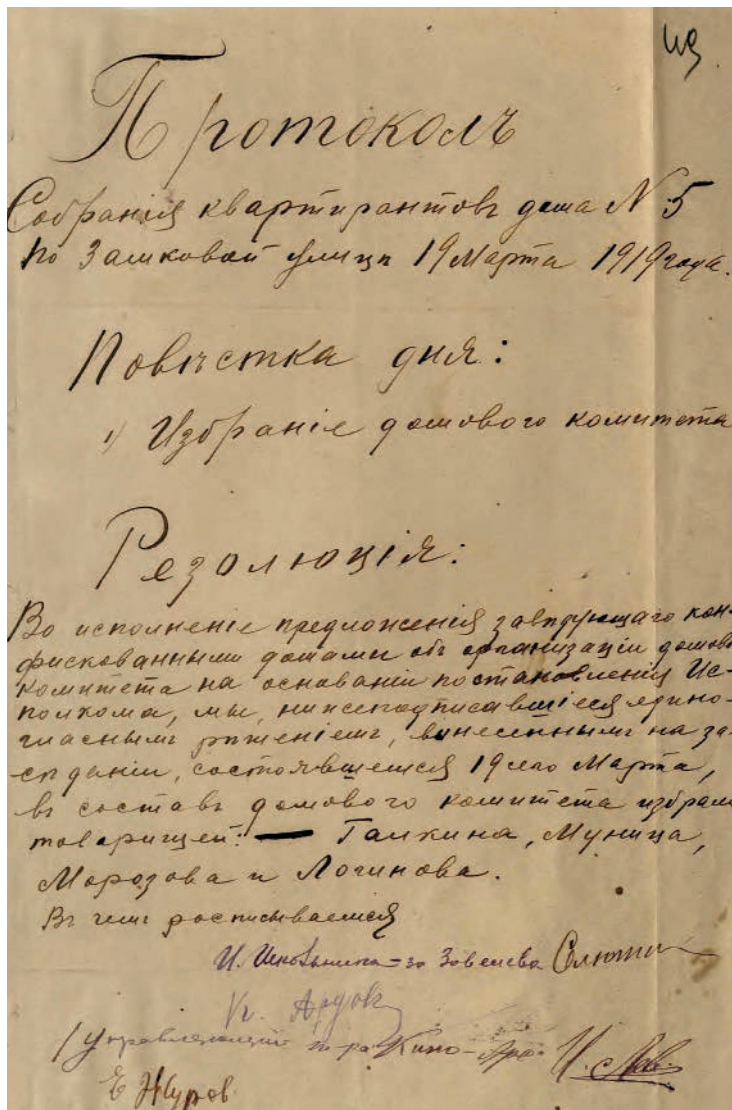 Протоколъ
Собранія квартирантовъ дома N 5
по Замковой улицѣ 19 Марта 1919 года.
Повѣстка дня:
1) Избраніе домового комитета
Резолюція:
Во исполненіе предложенія завѣдующаго кон-
фискованными домами объ организаціи домов
комитета на основаніи постановленія Ис-
полкома, мы, нижеподписавшіеся едино-
гласнымъ рѣшеніемъ, вынесеннымъ на за-
сѣданіи, состоявшемся 19 сего Марта,
въ составъ домового комитета избрали
товарищей: — Галкина, Муница,
Морозова и Логинова.
Въ чемъ росписываемся
за
Управляющій Кино-
Е Журов